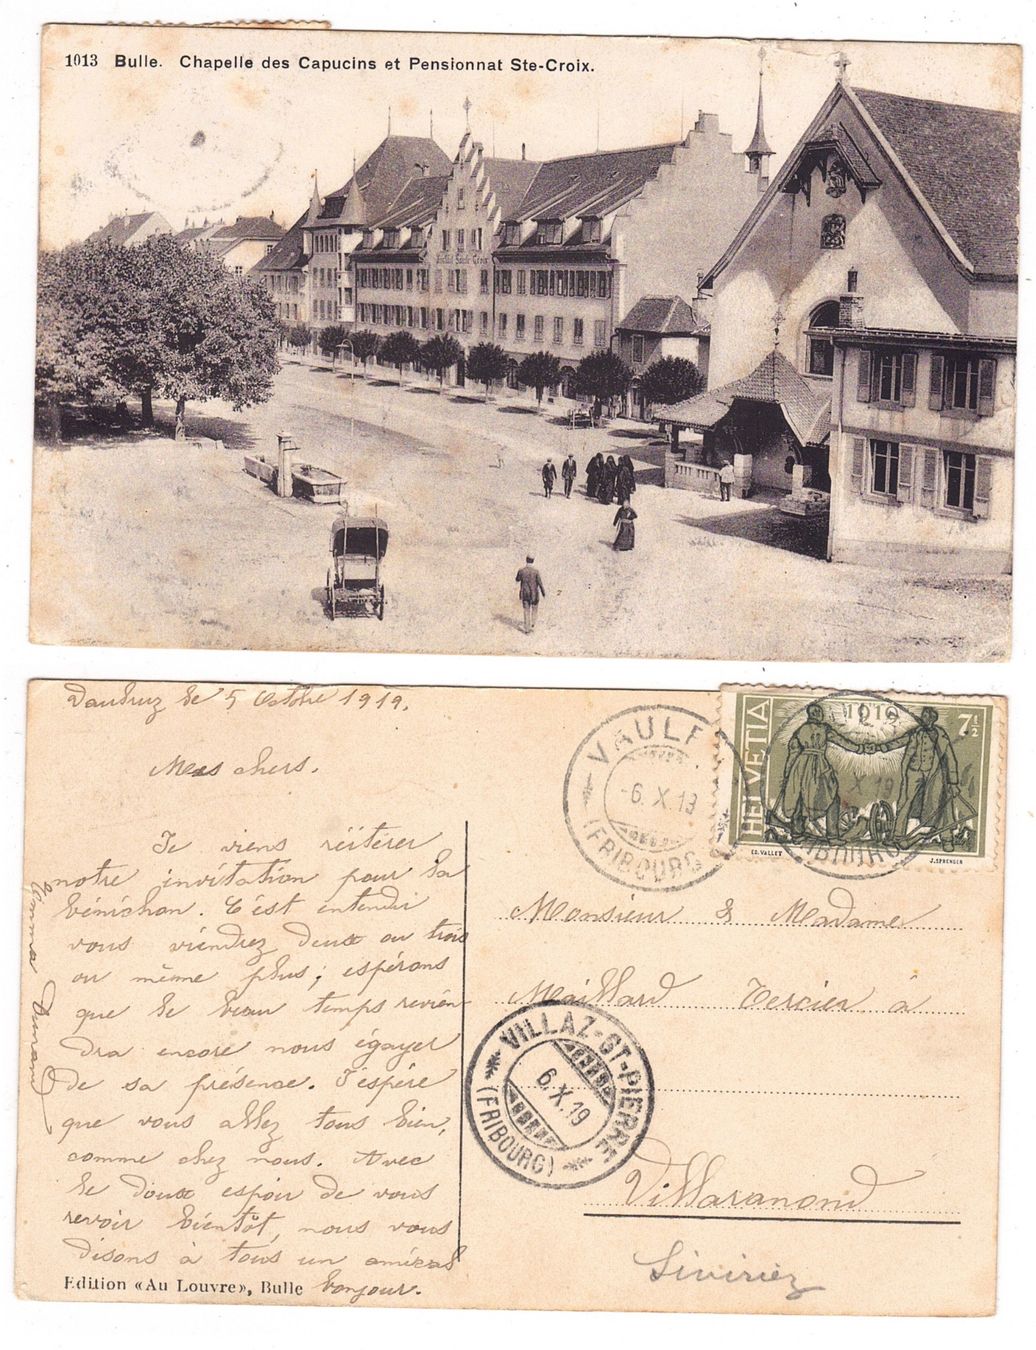 1013 Bulle. Chapelle des Capucins et Pensionnat Ste-Croix.
Institut Sainte Croix
Vaulruz le 5 Octobre 1919.
Mes chers.
Je viens réitérer
notre invitation pour la
bénichon. C'est entendu
vous viendrez deux ou trois
ou même plus; espérons
que le beau temps revien
dra encore nous égayer
de sa présence. J'espère
que vous allez tous bien,
comme chez nous. Avec
le doux espoir de vous
revoir bientôt, nous vous
disons à tous un amical
bonjour.
Emma
Edition «Au Louvre», Bulle
VAULR
-6.X.19
(FRIBOURG)
HELVETIA
1919
7½
ED. VALLET
J. SPRENGER
X 19
Monsieur & Madame
Maillard Tercier à
VILLAZ-ST-PIERRE
6.X.19
(FRIBOURG)
Villaranond
Siviriez